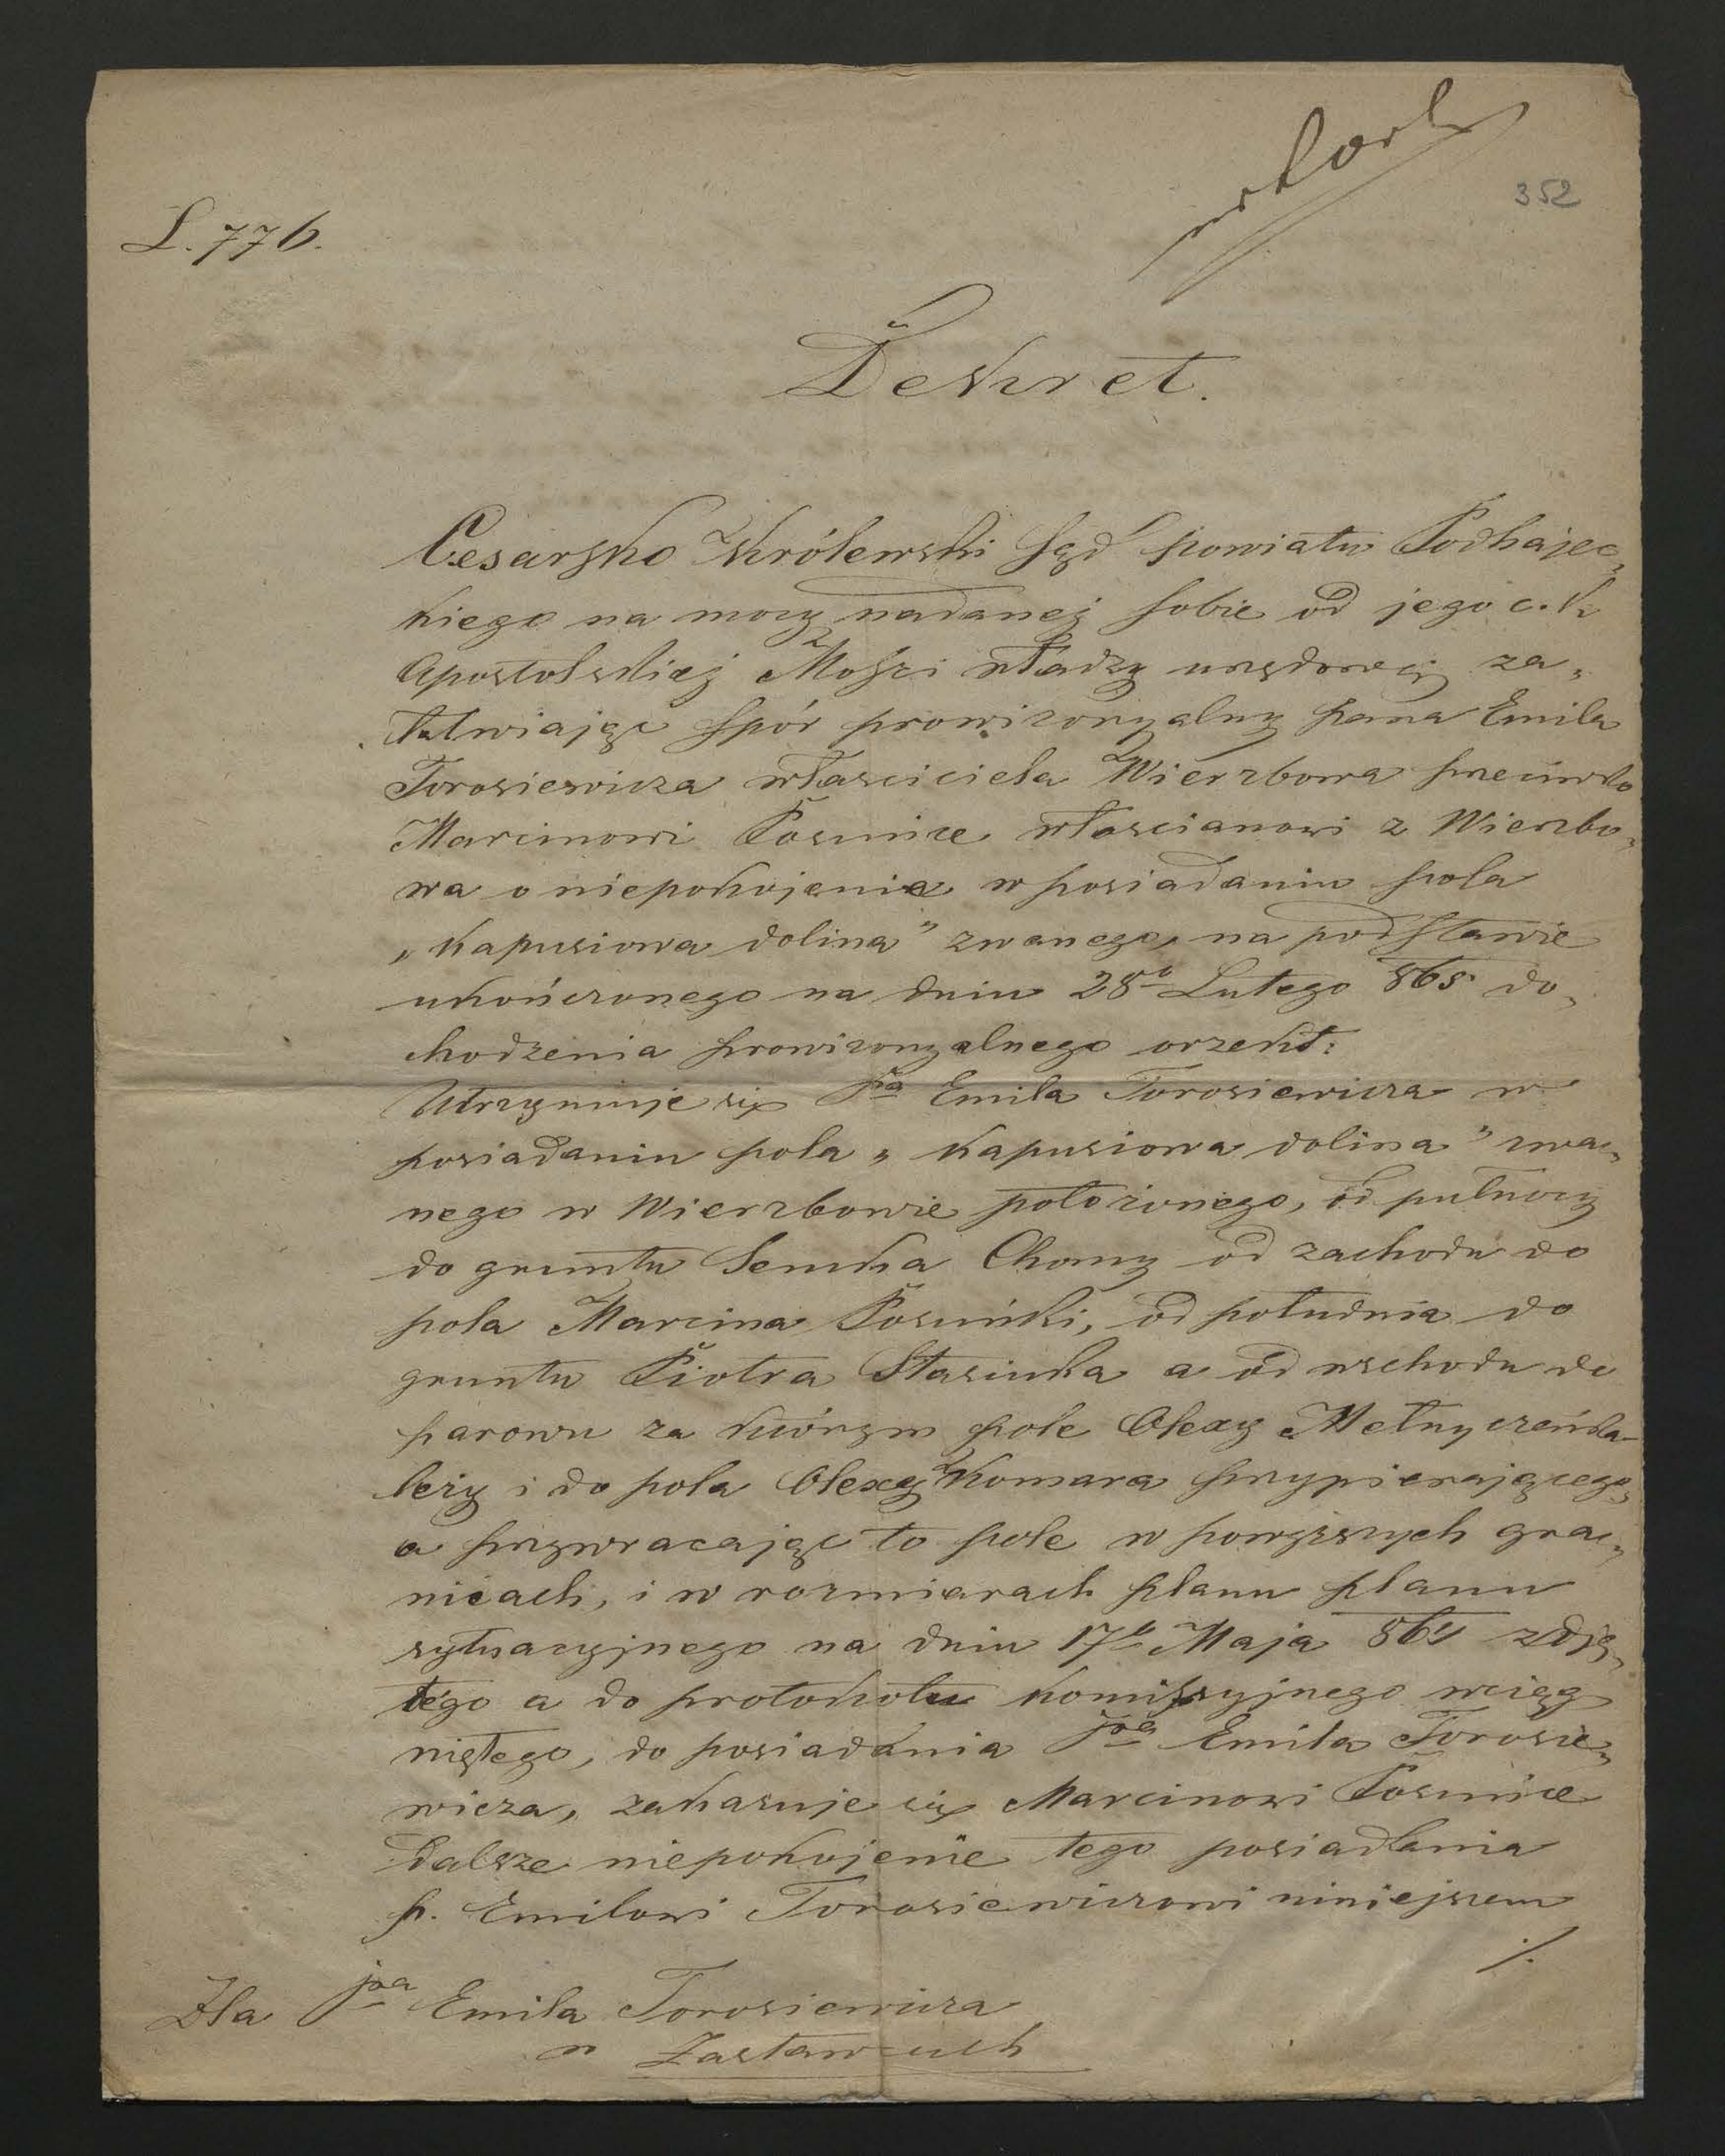 352
L. 776.
Dekret.
Cesarsko królewski Sąd powiatu Podhajec„
kiego na mocy nadanej sobie od jego c. k
Apostolskiej Mości władzy urzędowej za„
łatwiając spór prowizoryalny pana Emila
Torosiewicza właściciela Wierzbowa przeciwko
Marcinowi włoscianowi z Wierzbo„
wa o niepokojenie w posiadaniu pola
„Kapusiowa dolina" zwanego, na podstawie
ukończonego na dniu 28º Lutego 865 do„
chodzenia prowizoryalnego orzekł:
Utrzymuje się pa Emila Torosiewicza w
posiadaniu pola „Kapusiowa dolina" zwa„
nego w Wierzbowie położonego, od pułnocy
do gruntu Semka Chomy od zachodu do
pola Marcina od południa do
gruntu Piotra Stasiuka a od wschodu do
parowu za którym pole Olexy Melnyczeńka
leży i do pola Olexy Komara przypierającego„
a przywracając to pole w powyższych gra„
nicach, i w rozmiarach planu planu
sytuacyjnego na dniu 17º Maja zdję„
tego a do protokołu komissyjnego wciąg
niętego, do posiadania pa Emila Torosie„
wicza, zakazuje się Marcinowi
dalsze niepokojenie tego posiadania
p. Emilowi Torosiewiczowi niniejszem
./.
Dla pa Emila Torosiewicza
w Zastawcach